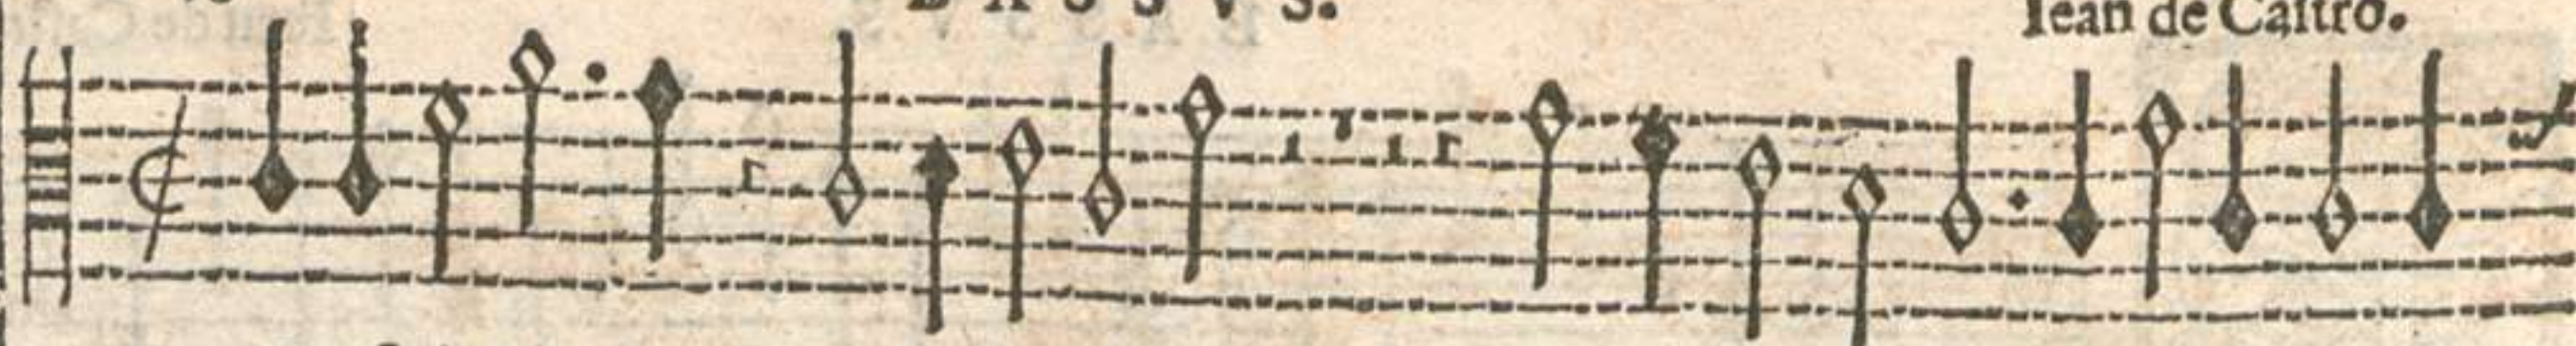 BASSVS.
Iean de Castro.